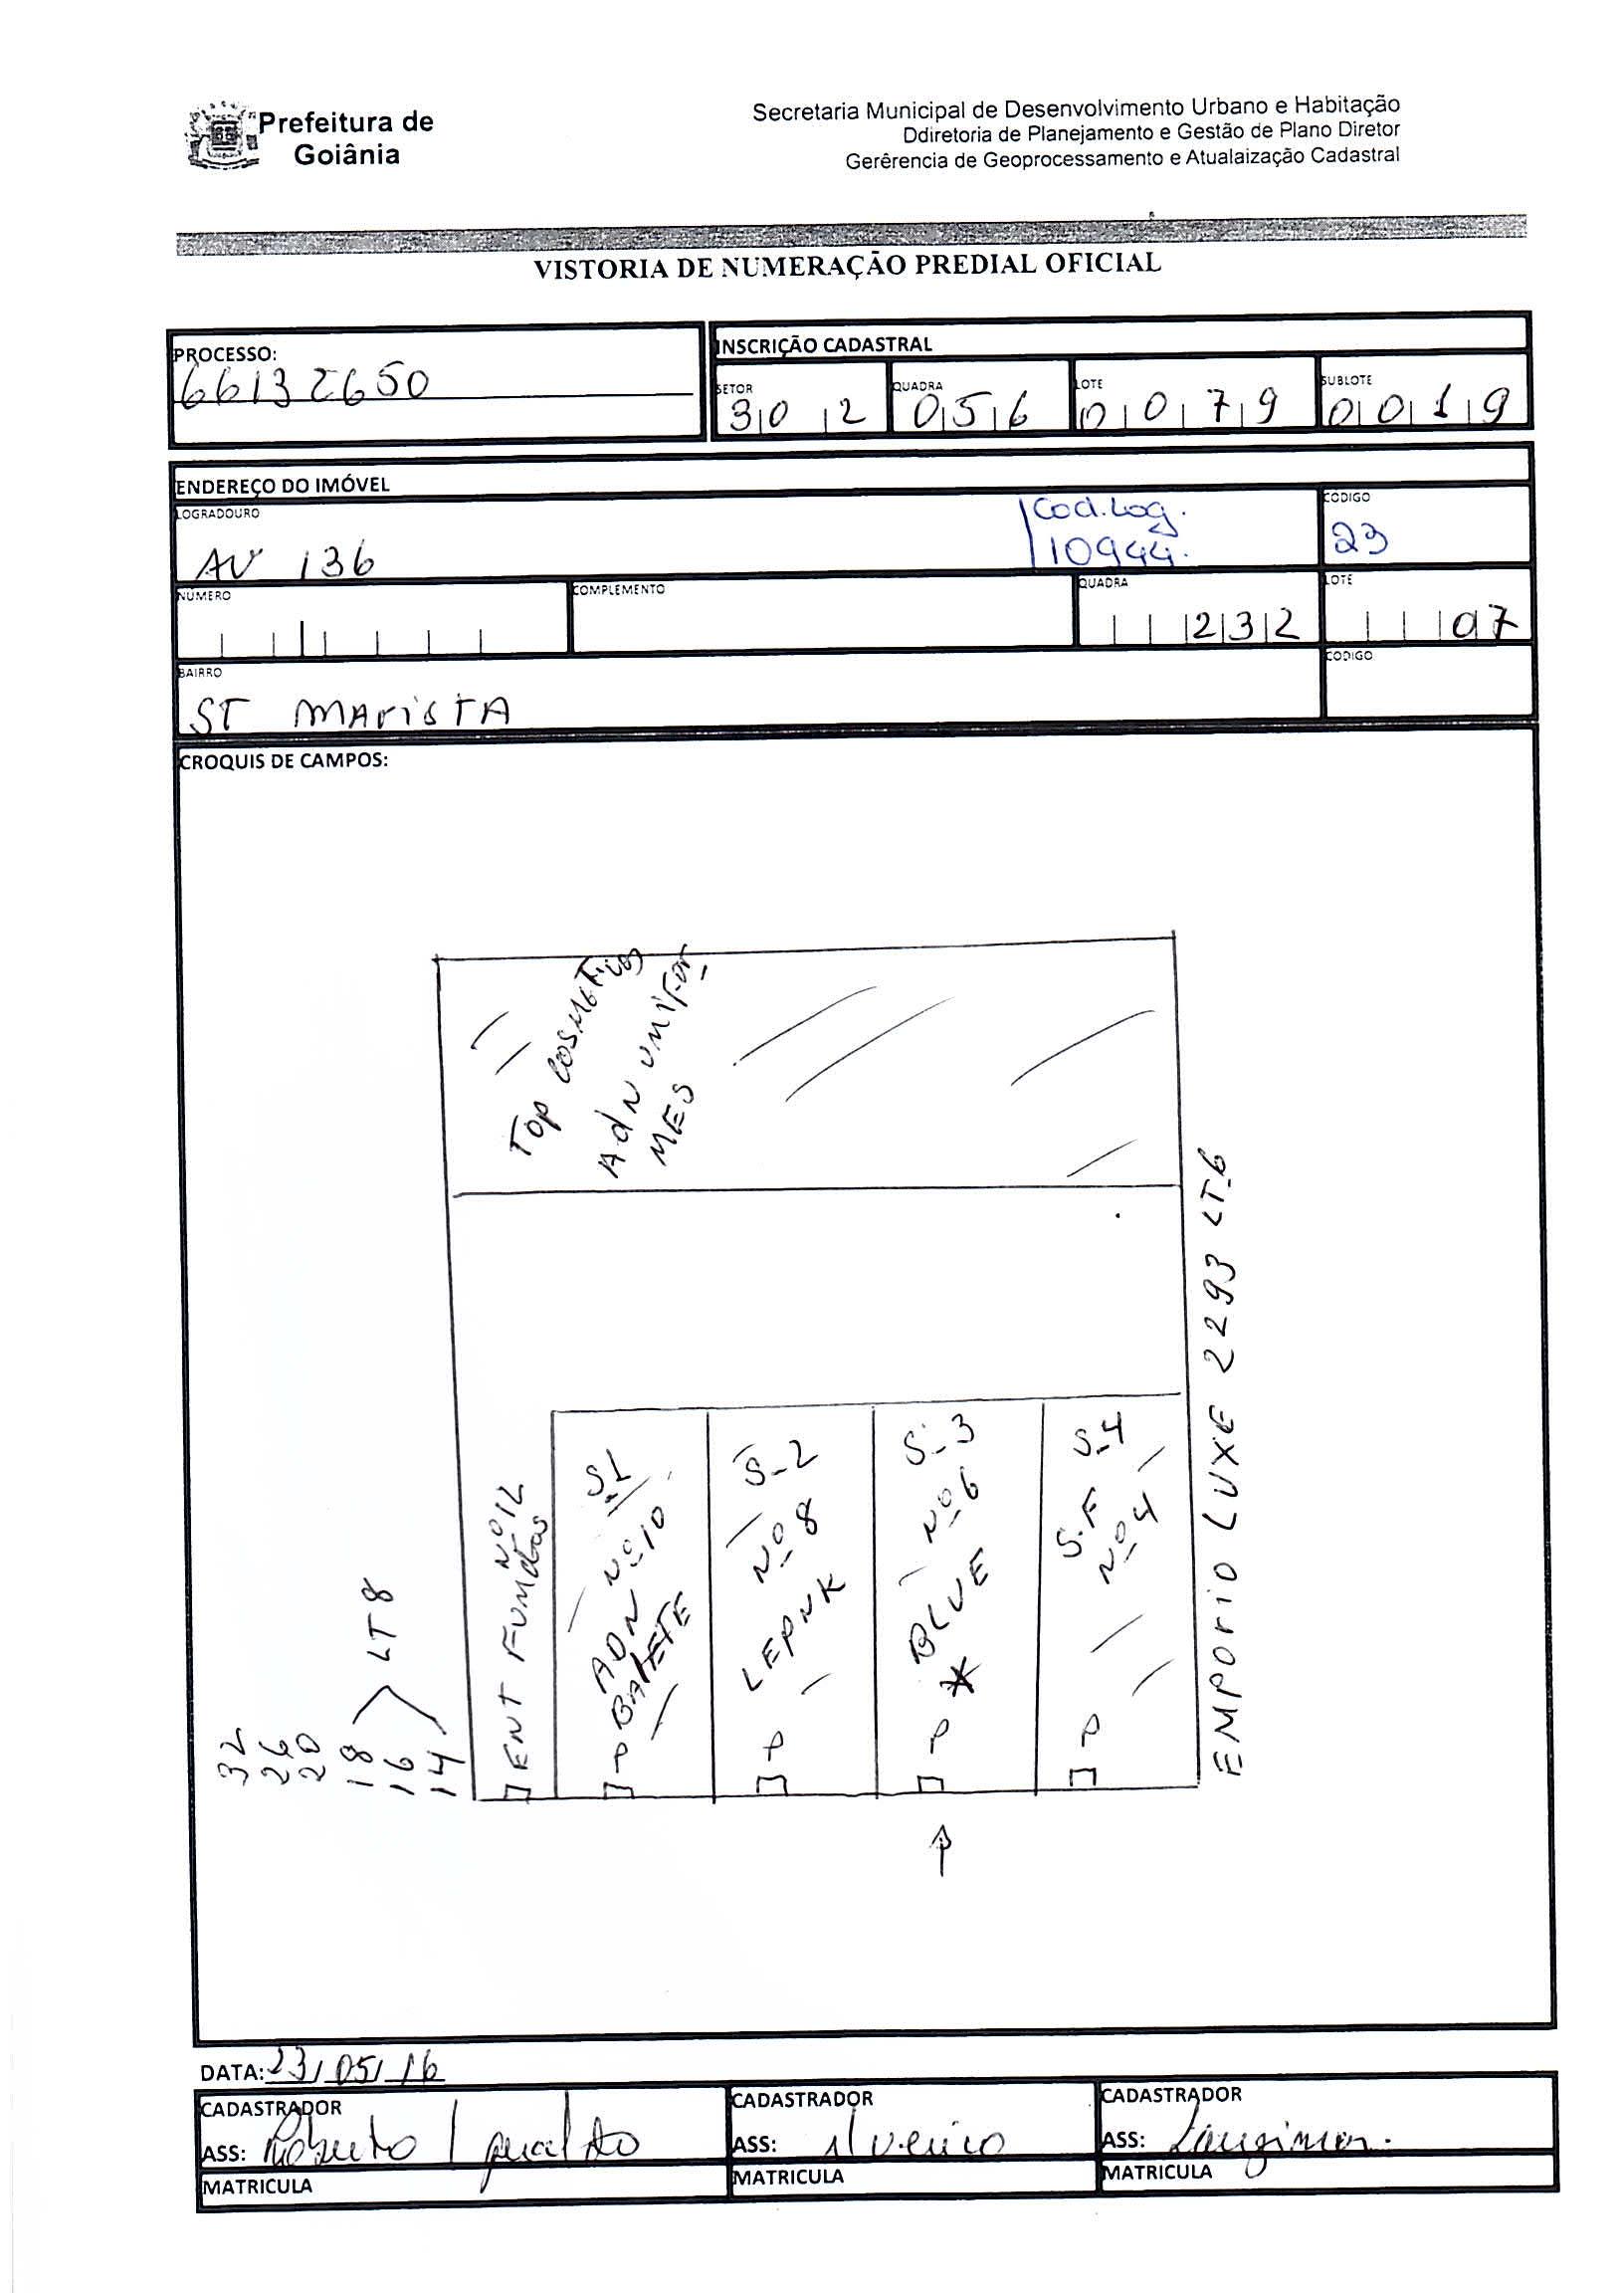 Prefeitura de
Goiânia
Secretaria Municipal de Desenvolvimento Urbano e Habitação
Ddiretoria de Planejamento e Gestão de Plano Diretor
Gerêrencia de Geoprocessamento e Atualaização Cadastral
VISTORIA DE NUMERAÇÃO PREDIAL OFICIAL
PROCESSO:
66132650
INSCRIÇÃO CADASTRAL
SETOR
302
QUADRA
056
LOTE
0079
SUBLOTE
0019
ENDEREÇO DO IMÓVEL
LOGRADOURO
AV 136
Cod. Log.
10944.
CODIGO
23
NÚMERO
COMPLEMENTO
QUADRA
232
LOTE
07
BAIRRO
ST MAriSTA
CODIGO
CROQUIS DE CAMPOS:
Top cosméticos
Adn unifor
MES
EMPOriO LUXE 2293 LT-6
32
26
20
18
16
14
LT8
ENT FUNDOS
Nº 12
S-1
Nº 10
ADN
S-2
Nº 8
S-3
Nº 6
BLUE
S-4
S.F
Nº 4
P
P
P
P
DATA: 23/05/16
CADASTRADOR
ASS:
MATRICULA
CADASTRADOR
ASS:
MATRICULA
CADASTRADOR
ASS:
MATRICULA